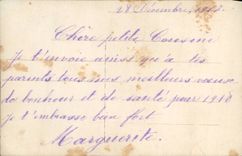 28 Décembre, 1917
Chère petite Cousine
je t'envoie ainsi qu'à tes
parents tous mes meilleurs vœux
de bonheur et de santé pour 1918
je t'embrasse bien fort
Marguerite.